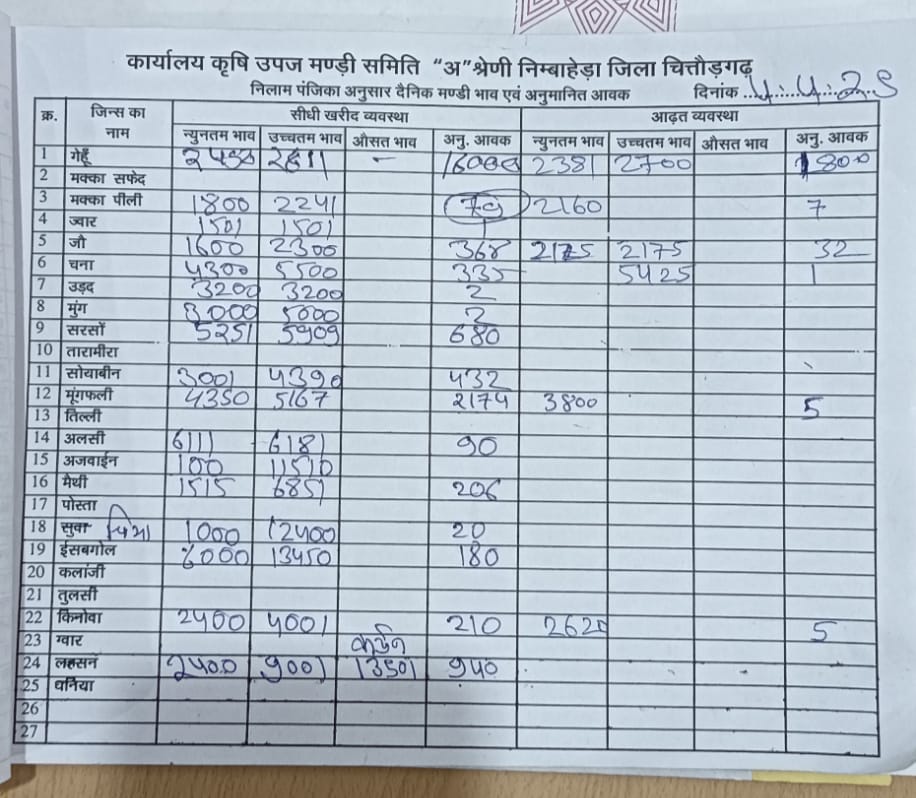 कार्यालय कृषि उपज मण्डी समिति "अ"श्रेणी निम्बाहेड़ा जिला चित्तौड़गढ़
निलाम पंजिका अनुसार दैनिक मण्डी भाव एवं अनुमानित आवक दिनांक ..4...4...25
क्र. जिन्स का नाम सीधी खरीद व्यवस्था आढ़त व्यवस्था
न्युनतम भाव उच्चतम भाव औसत भाव अनु. आवक न्युनतम भाव उच्चतम भाव औसत भाव अनु. आवक
1 गेहूँ 2611 - 16000 2381 2700 1800
2 मक्का सफेद
3 मक्का पीली 1800 2241 2160 7
4 ज्वार 1501 1501 1
5 जौ 1600 2300 368 2175 2175 32
6 चना 4300 5500 335 5425 1
7 उड़द 3200 3200 2
8 मुंग 5000 2
9 सरसों 5251 5909 680
10 तारामीरा
11 सोयाबीन 3001 4390 432
12 मूंगफली 4350 5167 2174 3800 5
13 तिल्ली
14 अलसी 6111 6181 90
15 अजवाईन 100 11510
16 मैथी 1515 6851 206
17 पोस्ता
18 सुवा चिया 1000 12400 20
19 ईसबगोल 13450 180
20 कलांजी
21 तुलसी
22 किनोवा 2400 4001 210 2620 5
23 ग्वार
24 लहसन 2400 9001 13501 940
25 धनिया
26
27